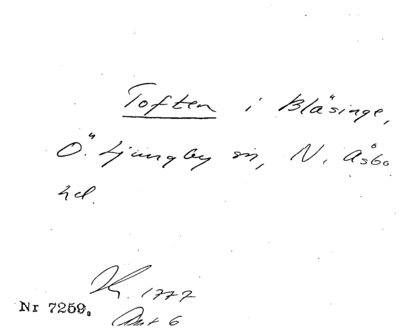 Toften i Bläsinge,
Ö. Ljungby sn, N. Åsbo
hd.
1777
Akt 6
Nr 7259.